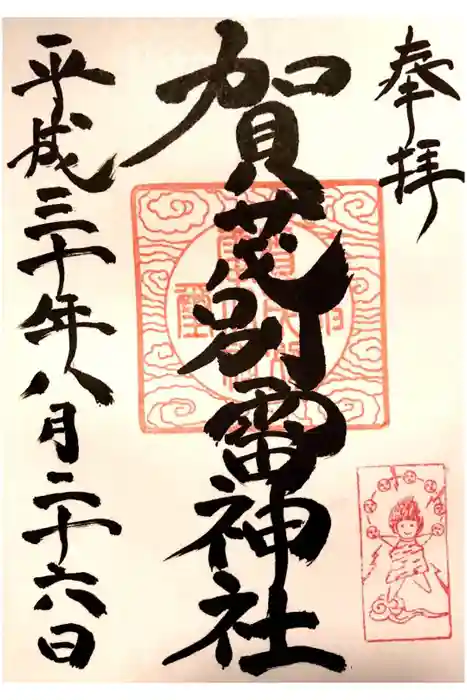 奉拝
賀茂別雷神社
平成三十年八月二十六日